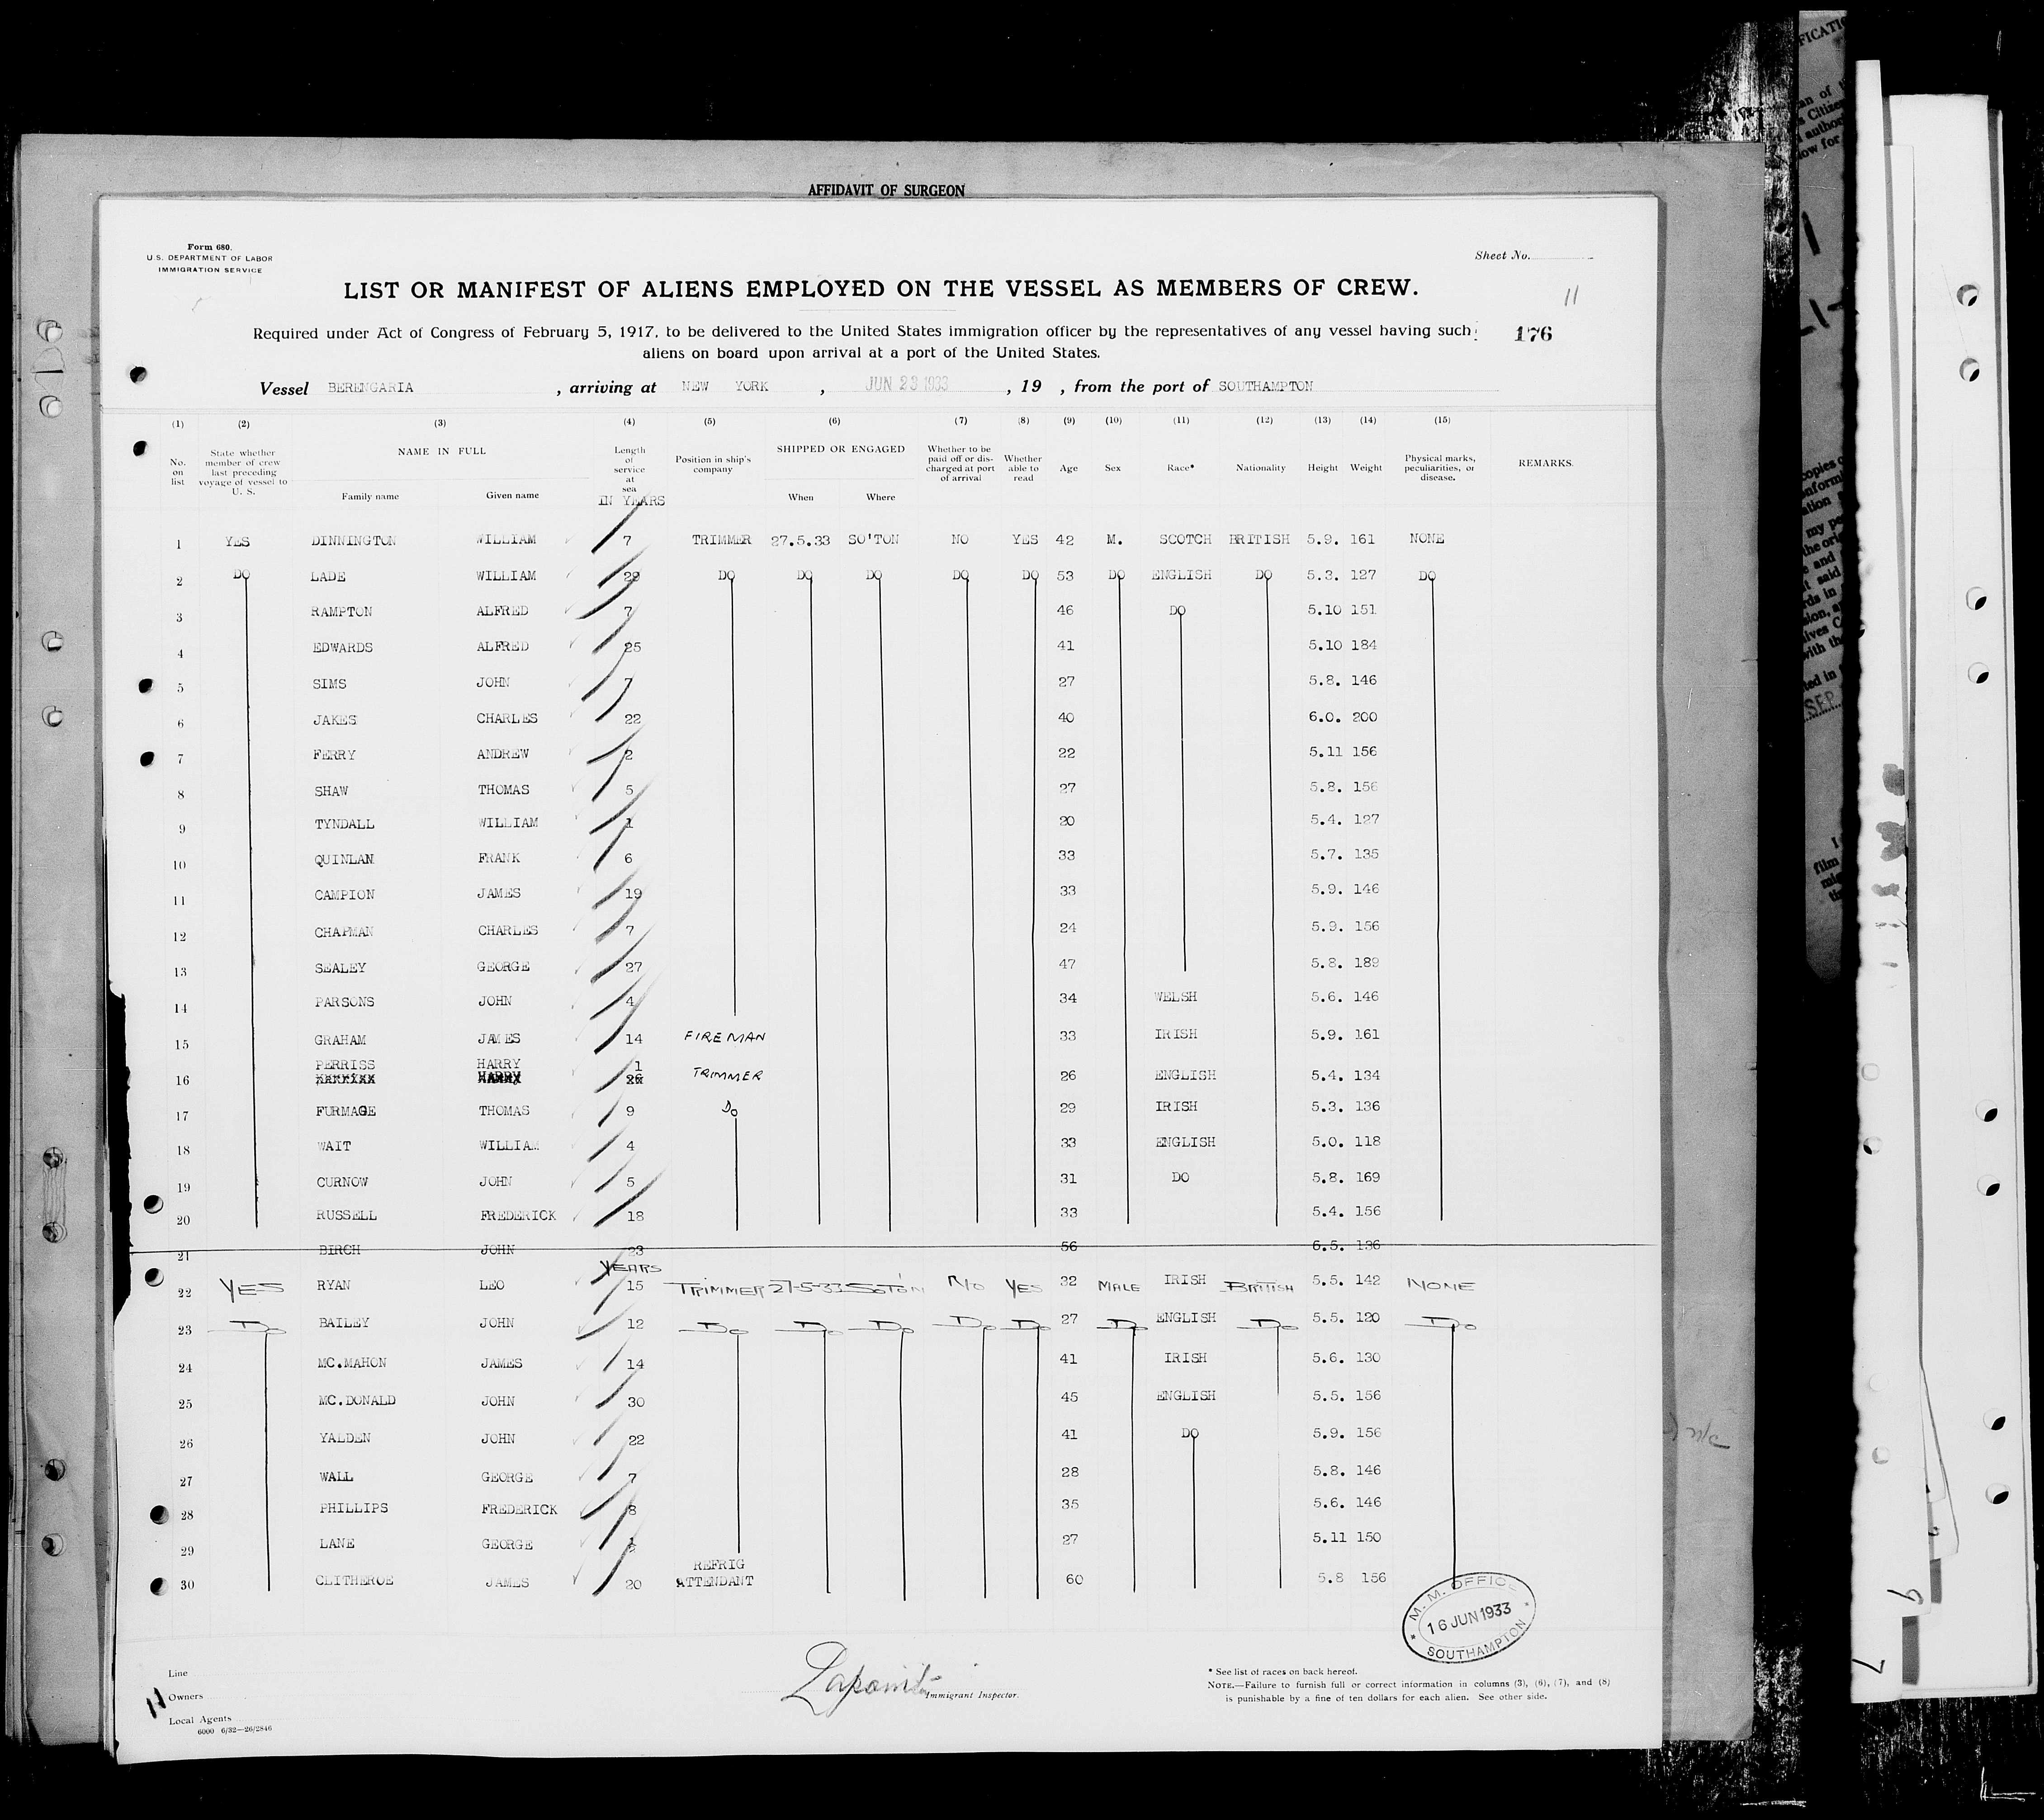 AFFIDAVIT OF SURGEON
Form 680.
U.S. DEPARTMENT OF LABOR
IMMIGRATION SERVICE
Sheet No.
LIST OR MANIFEST OF ALIENS EMPLOYED ON THE VESSEL AS MEMBERS OF CREW.
11
Required under Act of Congress of February 5, 1917, to be delivered to the United States immigration officer by the representatives of any vessel having such
176
aliens on board upon arrival at a port of the United States.
Vessel BERENGARIA , arriving at NEW YORK , JUN 23 1933 , 19 , from the port of SOUTHAMPTON
(1) (2) (3) (4) (5) (6) (7) (8) (9) (10) (11) (12) (13) (14) (15)
No. on list
State whether member of crew last preceding voyage of vessel to U. S.
NAME IN FULL
Family name Given name
Length of service at sea
IN YEARS
Position in ship's company
SHIPPED OR ENGAGED
When Where
Whether to be paid off or discharged at port of arrival
Whether able to read
Age Sex Race* Nationality Height Weight
Physical marks, peculiarities, or disease.
REMARKS.
1 YES DINNINGTON WILLIAM 7 TRIMMER 27.5.33 SO'TON NO YES 42 M. SCOTCH BRITISH 5.9. 161 NONE
2 DO LADE WILLIAM 29 DO DO DO DO DO 53 DO ENGLISH DO 5.3. 127 DO
3 RAMPTON ALFRED 7 46 DO 5.10 151
4 EDWARDS ALFRED 25 41 5.10 184
5 SIMS JOHN 7 27 5.8. 146
6 JAKES CHARLES 22 40 6.0. 200
7 FERRY ANDREW 2 22 5.11 156
8 SHAW THOMAS 5 27 5.8. 156
9 TYNDALL WILLIAM 1 20 5.4. 127
10 QUINLAN FRANK 6 33 5.7. 135
11 CAMPION JAMES 19 33 5.9. 146
12 CHAPMAN CHARLES 7 24 5.9. 156
13 SEALEY GEORGE 27 47 5.8. 189
14 PARSONS JOHN 4 34 WELSH 5.6. 146
15 GRAHAM JAMES 14 FIREMAN 33 IRISH 5.9. 161
PERRISS HARRY 1
16 HARRY TRIMMER 26 ENGLISH 5.4. 134
17 FURMAGE THOMAS 9 Do 29 IRISH 5.3. 136
18 WAIT WILLIAM 4 33 ENGLISH 5.0. 118
19 CURNOW JOHN 5 31 DO 5.8. 169
20 RUSSELL FREDERICK 18 33 5.4. 156
21 BIRCH JOHN 23 56 6.5. 136
YEARS
22 YES RYAN LEO 15 TRIMMER 27-5-33 SOTON NO YES 32 MALE IRISH BRITISH 5.5. 142 NONE
23 Do BAILEY JOHN 12 Do Do Do Do Do 27 Do ENGLISH Do 5.5. 120 Do
24 MC.MAHON JAMES 14 41 IRISH 5.6. 130
25 MC.DONALD JOHN 30 45 ENGLISH 5.5. 156
26 YALDEN JOHN 22 41 DO 5.9. 156
27 WALL GEORGE 7 28 5.8. 146
28 PHILLIPS FREDERICK 8 35 5.6. 146
29 LANE GEORGE 27 5.11 150
REFRIG
30 CLITHEROE JAMES 20 ATTENDANT 60 5.8 156
M. M. OFFICE
16 JUN 1933
SOUTHAMPTON
Line
Owners
Local Agents
6000 6/32—26/2846
Immigrant Inspector.
* See list of races on back hereof.
NOTE.—Failure to furnish full or correct information in columns (3), (6), (7), and (8)
is punishable by a fine of ten dollars for each alien. See other side.